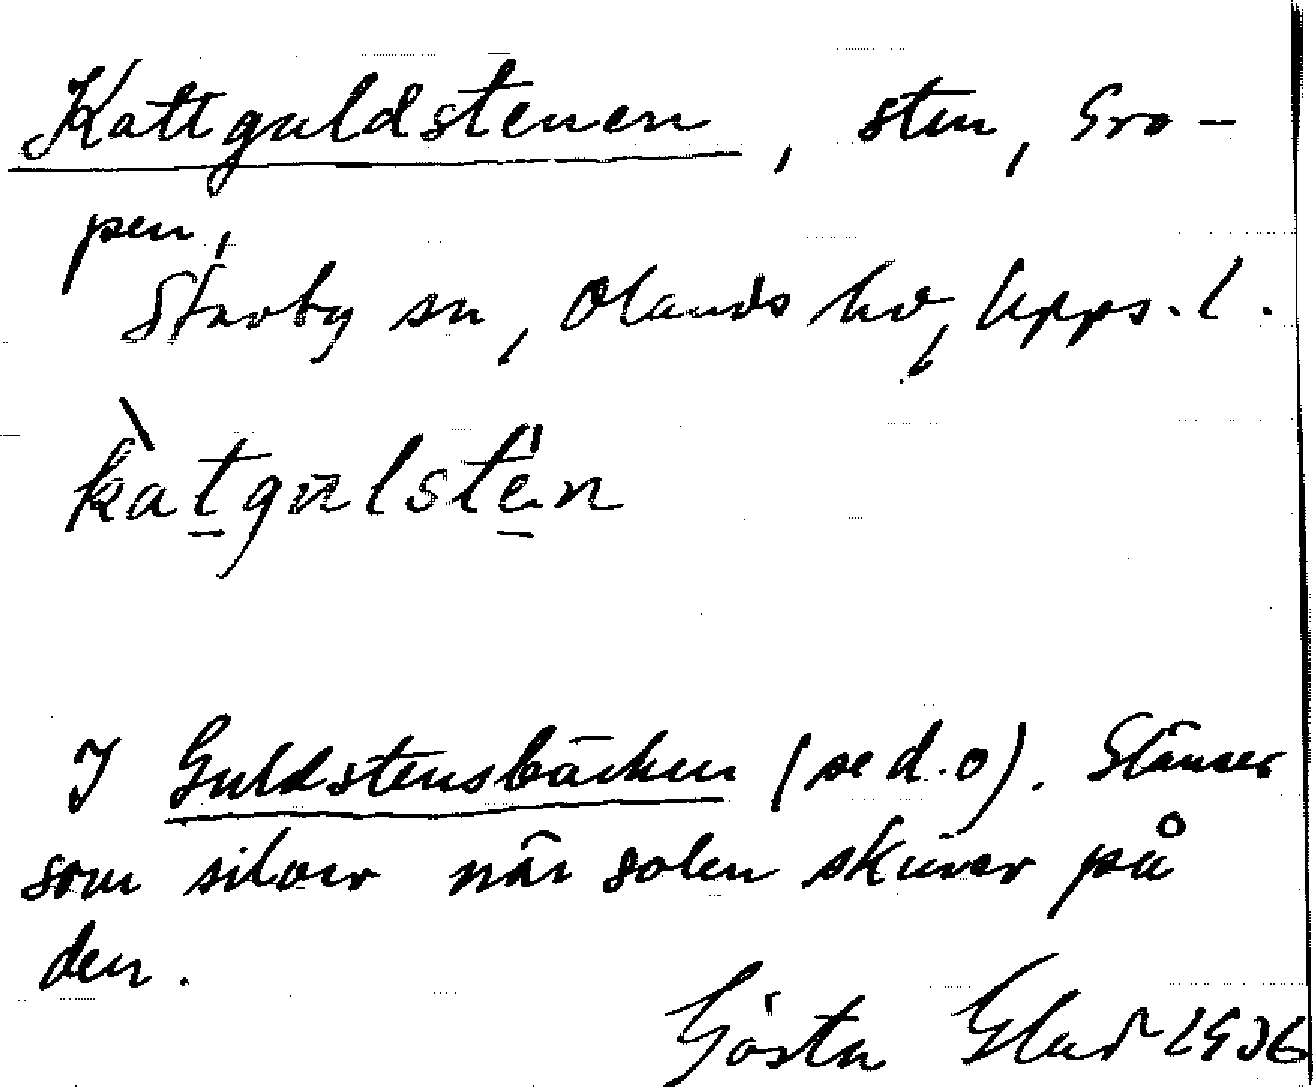 Kattguldstenen, sten, Gro-
pen,
Stavby sn, Olands hd, Upps. l.
kat̲gulste̲n
I Guldstensbäcken (se d.o). Glänser
som silver när solen skiner på
den.
Gösta Glad 1936